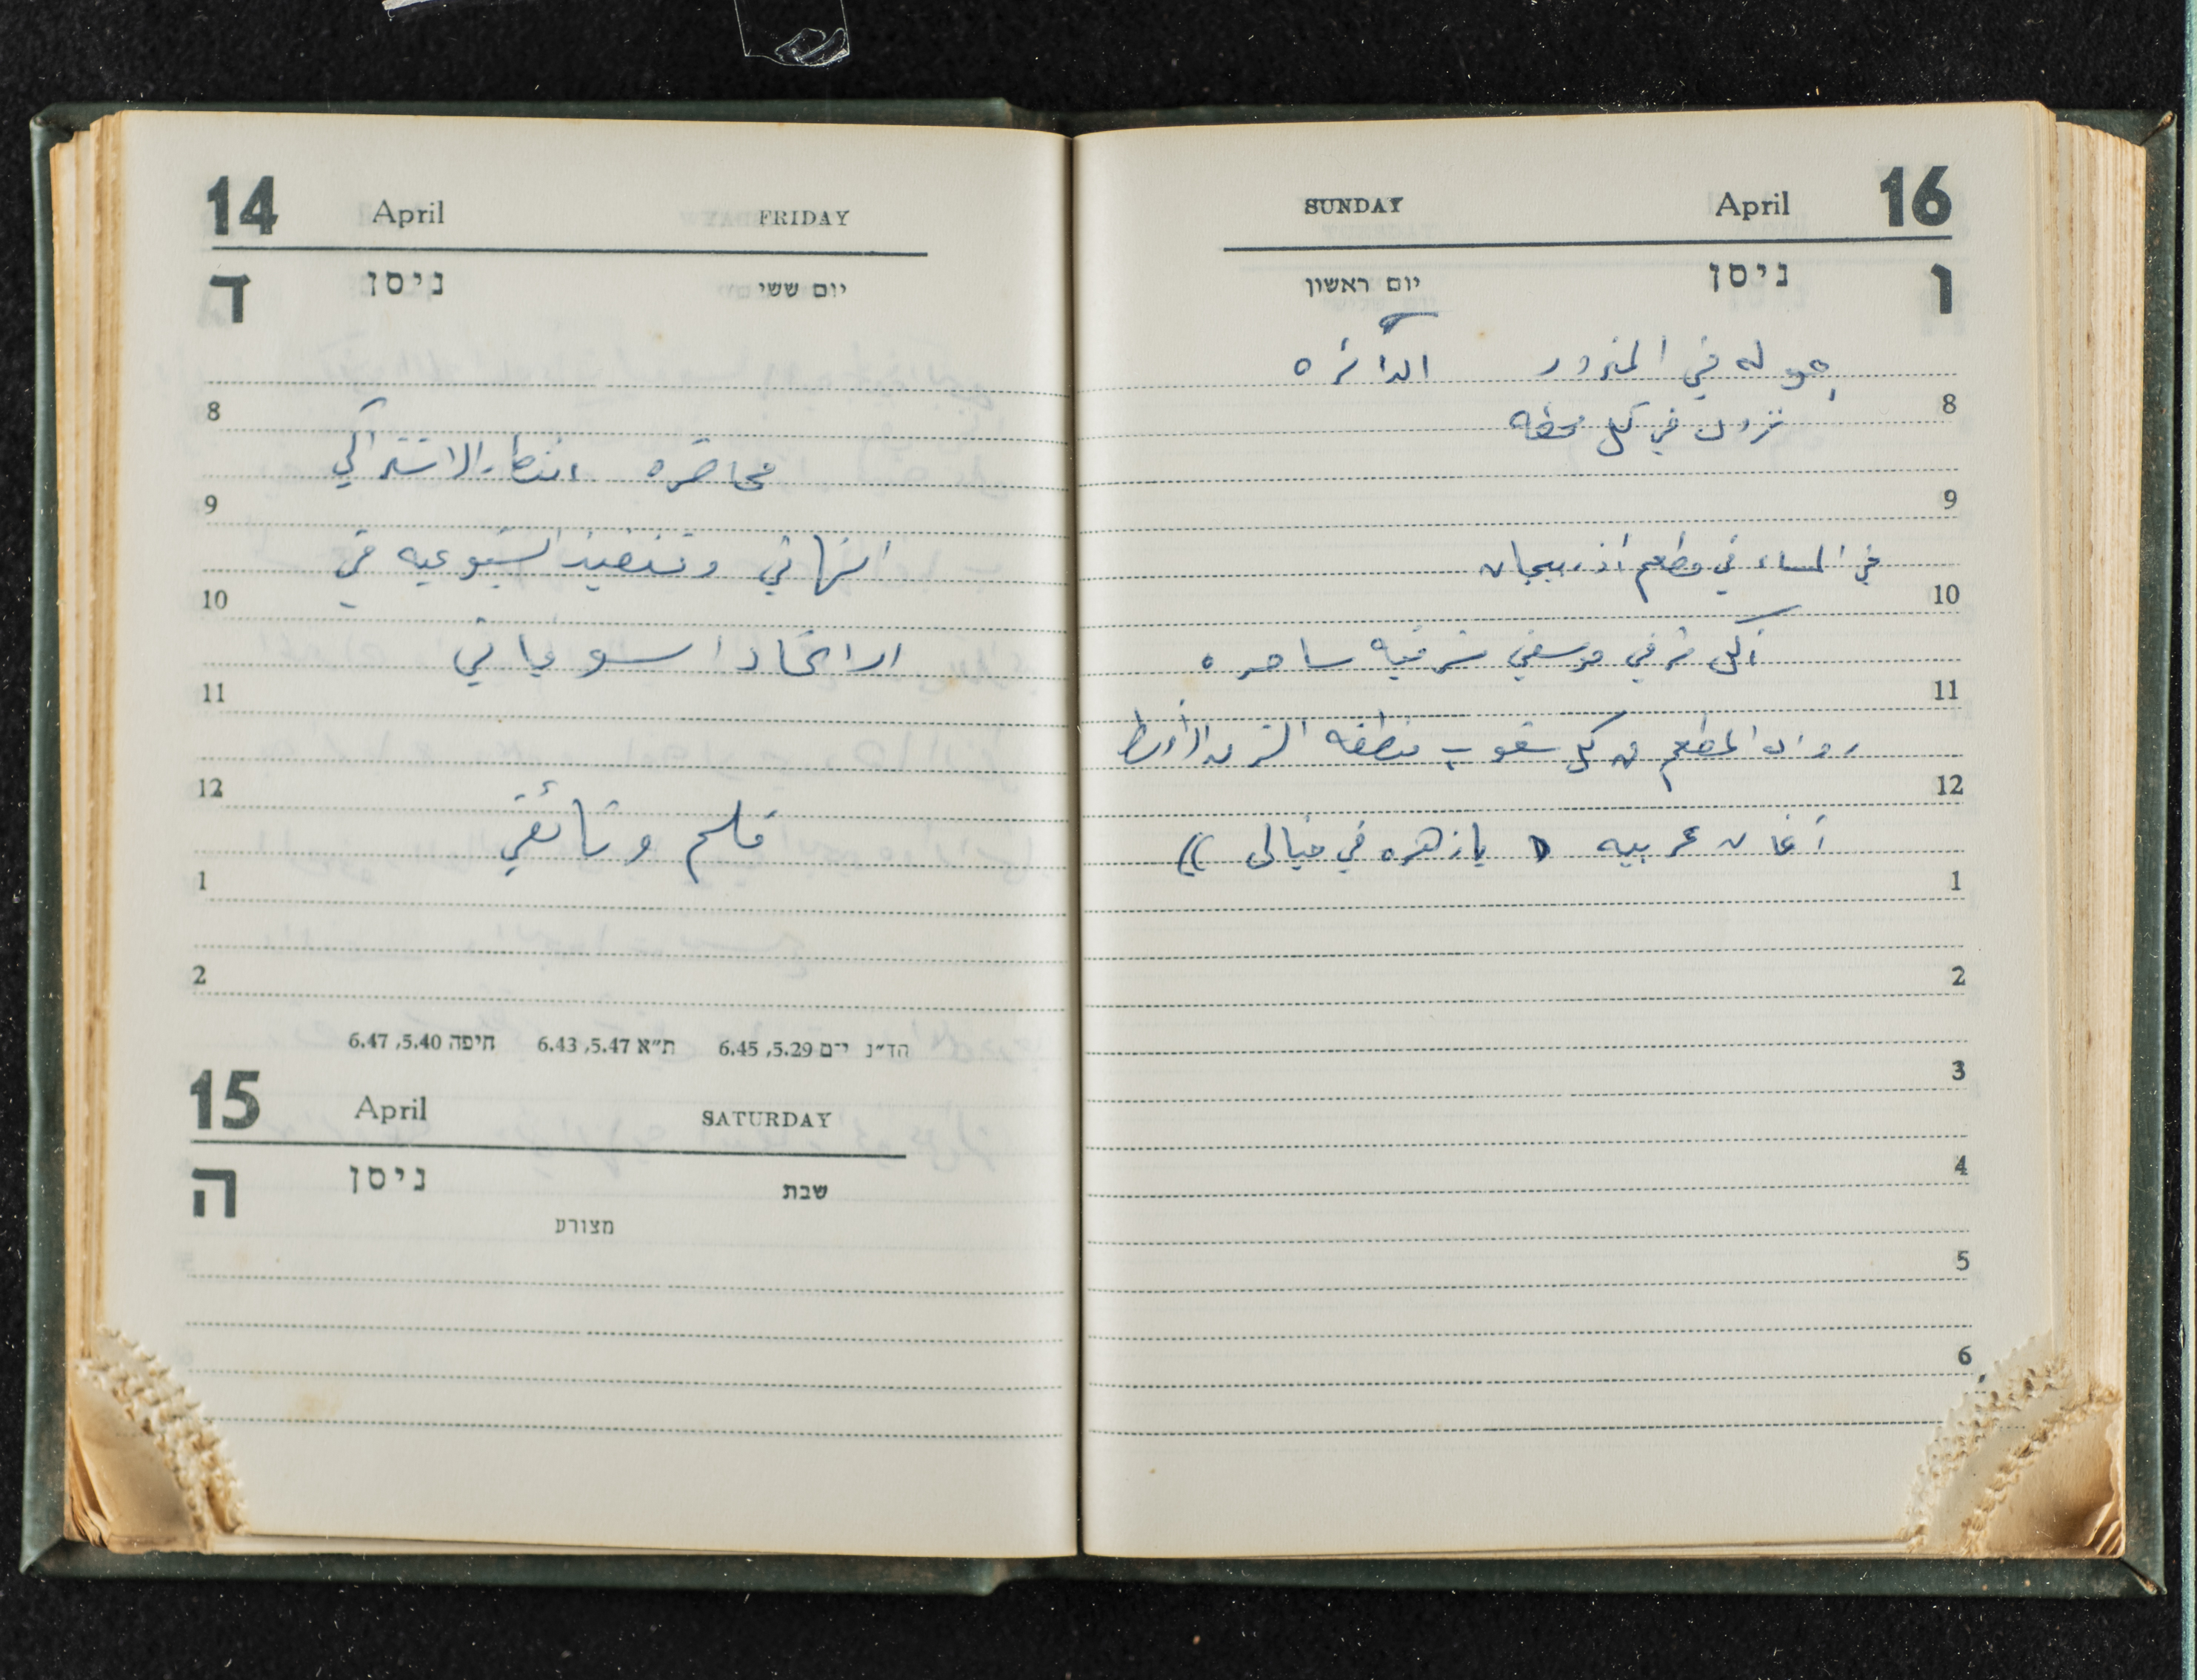 14 April FRIDAY
ד ניסן יום ששי
8
محاضره انتصار الاشتراكي
9
النهائي وتنفيذ الشيوعيه في
10
الاتحاد السوفياتي
11
12
فلم وثائقي
1
2
הד״נ י־ם 5.29, 6.45 ת״א 5.47, 6.43 חיפה 5.40, 6.47
15 April SATURDAY
ה ניסן שבת
מצורע
SUNDAY April 16
יום ראשון ניסן ו
جوله في المترو الدائره
8
نزول في كل محطه
9
في المساء في مطعم أذربيجان
10
أكل شرقي موسيقى شرقيه ساحره
11
رواد المطعم من كل شعوب منطقه الشرق الأوسط
12
أغان عربيه « يا زهره في خيالي »
1
2
3
4
5
6